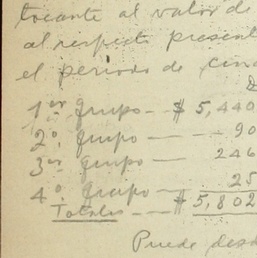 tocante al valor de
al respecto present
el periodo de cin
1er grupo - $ 5,440
2o. grupo — 90
3er grupo — 246
4o. grupo — 25
Totales - - $ 5,802
Puede des